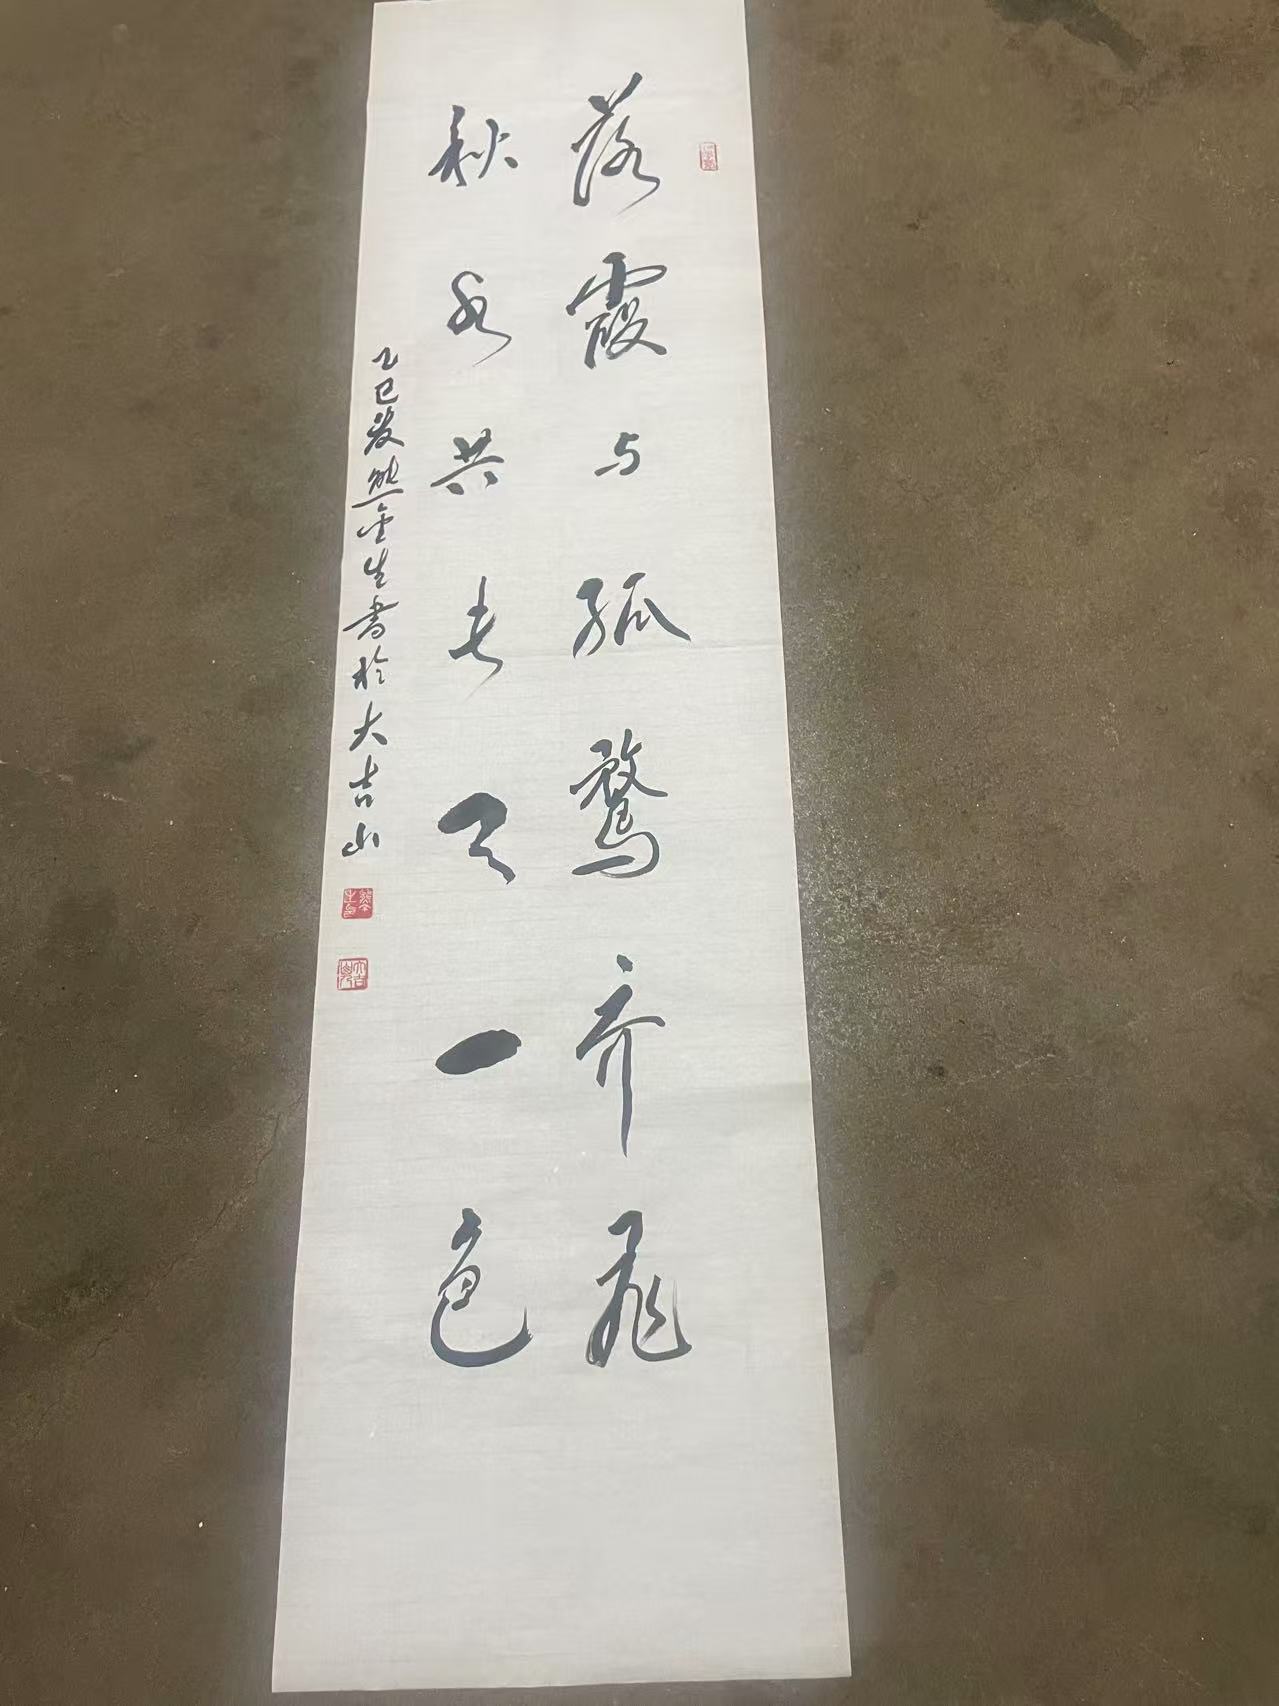 落霞与孤鹜齐飞
秋水共长天一色
乙巳歲熊金生書於大吉山